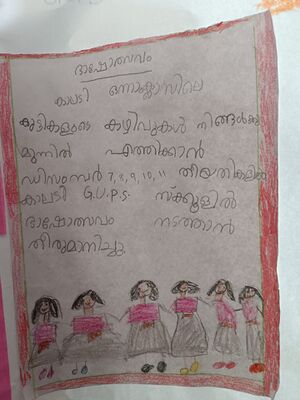 ഭാഷോത്സവം
കാലടി ഒന്നാംക്ലാസിലെ
കുട്ടികളുടെ കഴിവുകൾ നിങ്ങൾക്കു
മുന്നിൽ എത്തിക്കാൻ
ഡിസംബർ 7,8,9,10,11 തീയതികളിൽ
കാലടി G.U.P.S. സ്ക്കൂളിൽ
ഭാഷോത്സവം നടത്താൻ
തീരുമാനിച്ചു.